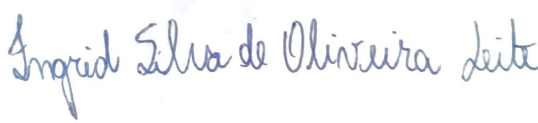 Ingrid Silva de Oliveira Leite